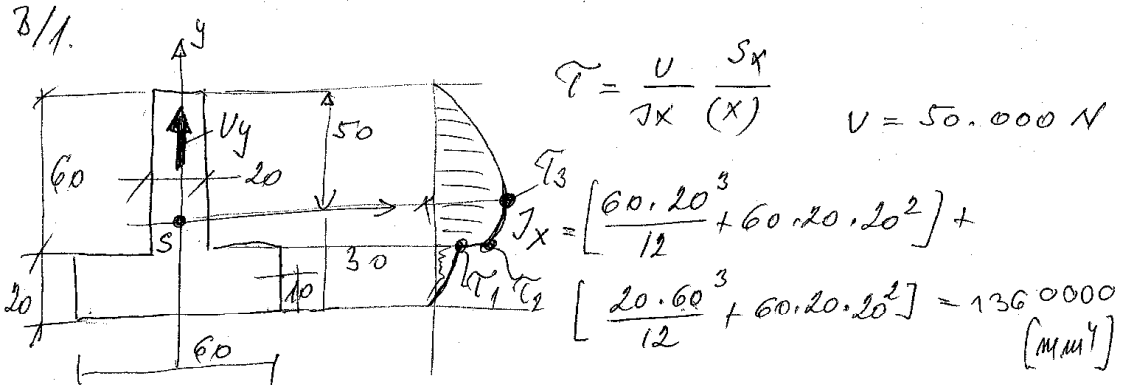 B/1.
y
Vy
60
20
50
S
30
20
10
60
x
τ3
τ1
τ2
τ = V/Jx Sx/(x)
V = 50.000 N
Jx = [60·20³/12 + 60·20·20²] +
[20·60³/12 + 60·20·20²] = 1360000
[mm⁴]